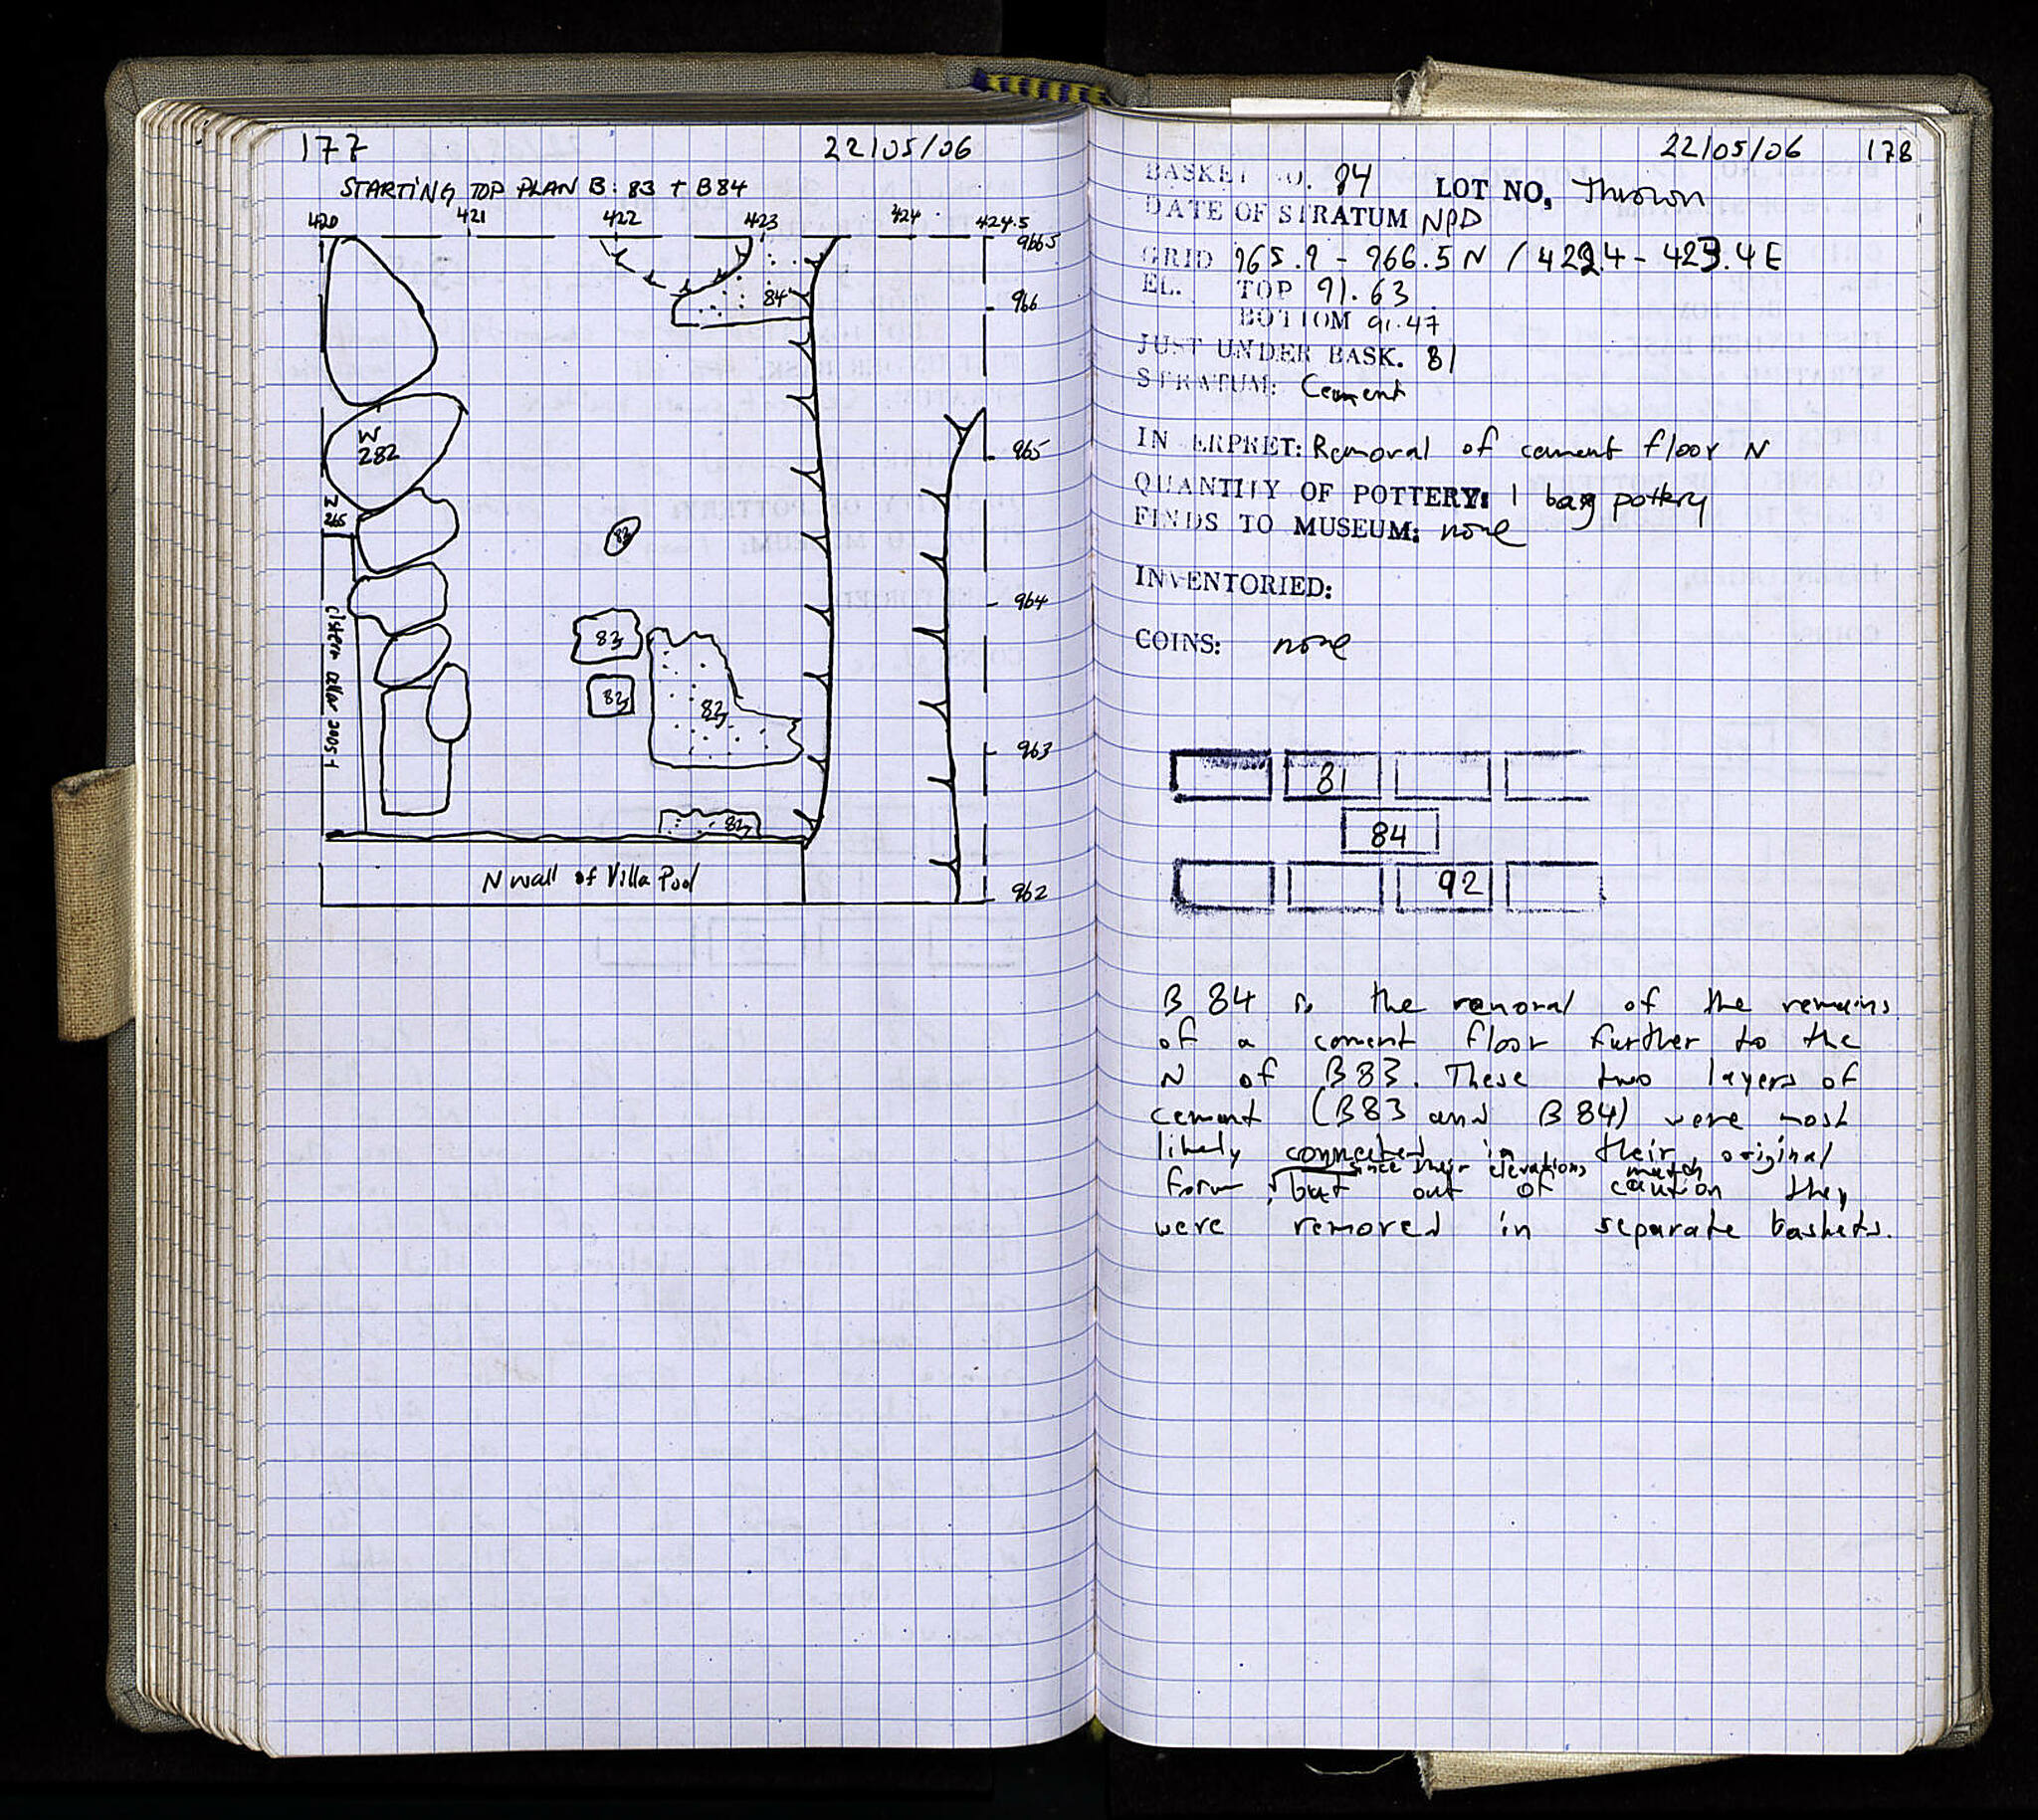 177
22/05/06
STARTING TOP PLAN B: 83 + B84
420 421 422 423 424 424.5
966.5
84
966
W
282
965
83
964
83
83
83
cistern
2005-1
963
83
N wall of Villa Pool
962
22/05/06 178
BASKET NO. 84 LOT NO. Thrown
DATE OF STRATUM NPD
GRID 965.9 - 966.5 N / 422.4 - 423.4 E
EL. TOP 91.63
BOTTOM 91.47
JUST UNDER BASK. 81
STRATUM: Cement
INTERPRET: Removal of cement floor N
QUANTITY OF POTTERY: 1 bag pottery
FINDS TO MUSEUM: none
INVENTORIED:
COINS: none
81
84
92
B 84 is the removal of the remains
of a cement floor further to the
N of B83. These two layers of
cement (B83 and B84) were most
likely connected in their original
since their elevations match
form, but out of caution they
were removed in separate baskets.